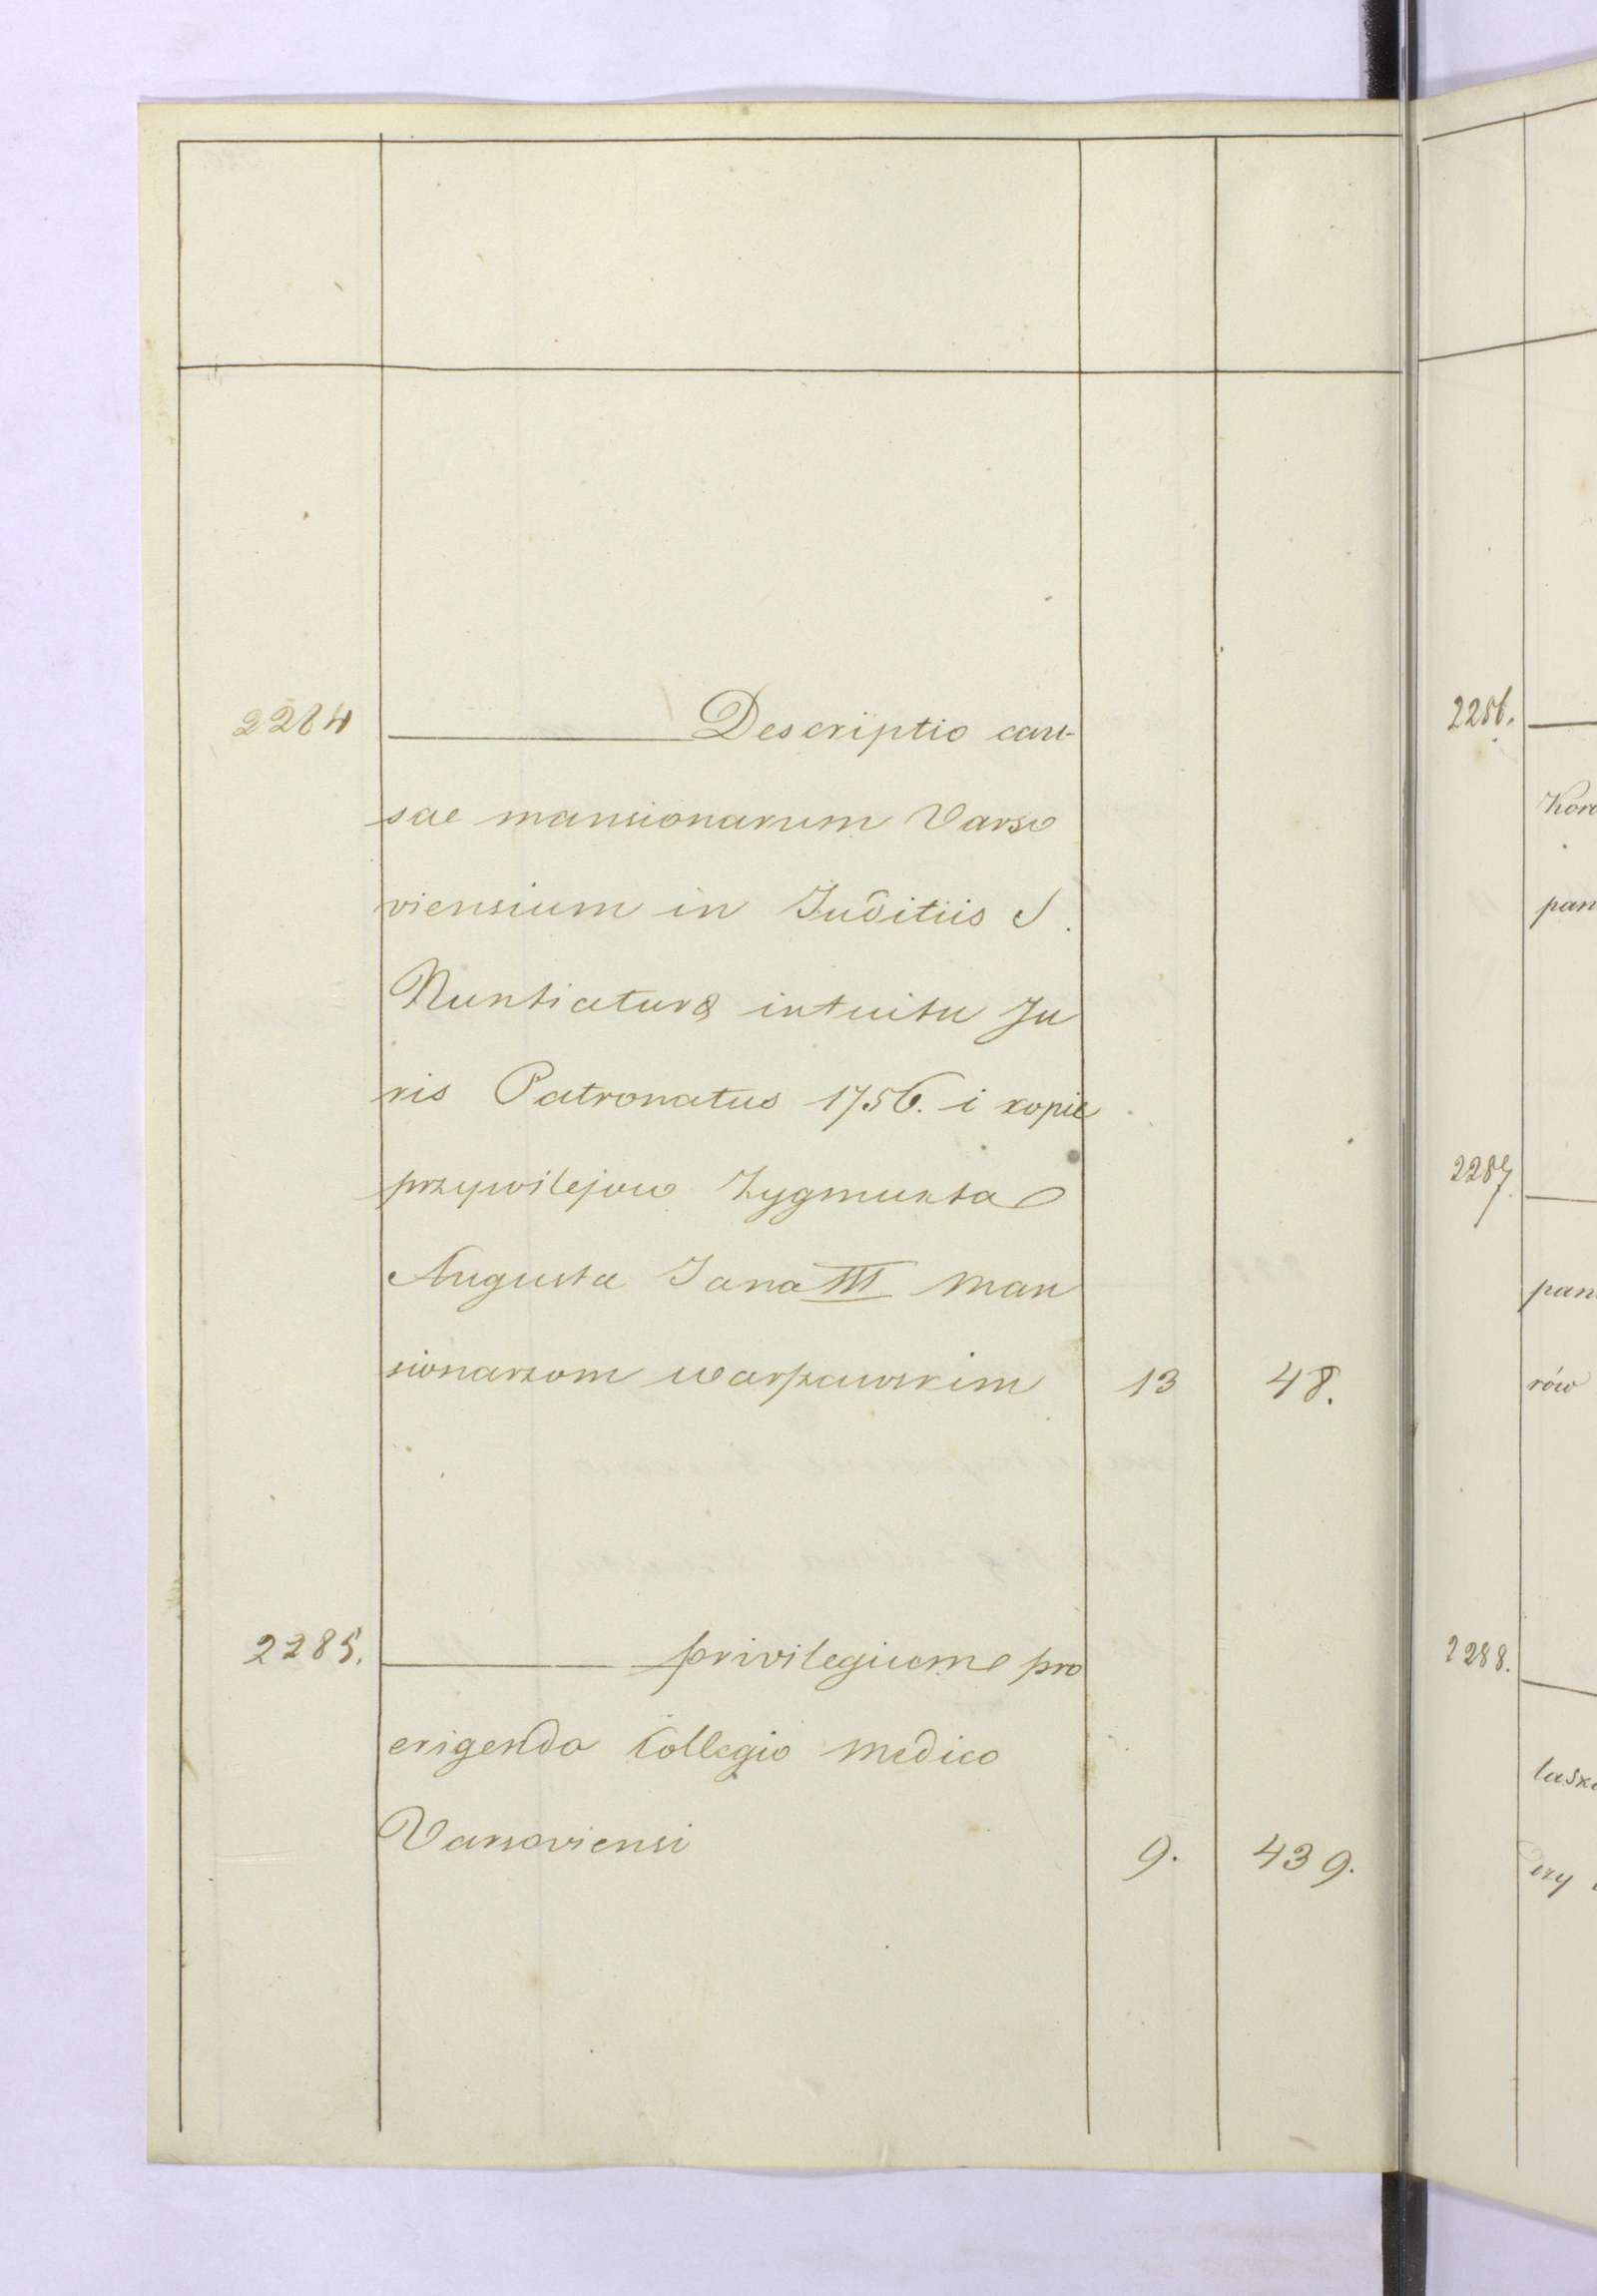 2284 Descriptio cau-
sae mansionarum Varso
viensium in Juditiis S.
Nuntiaturæ intuitu Ju
ris Patronatus 1756. i kopie
przywilejow Zygmunta
Augusta Jana III man
sionarzom warszawskim 13 48.
2285. privilegium pro
erigendo Collegio medico
Varsoviensi 9. 439.
2286.
Kor
pan
2287
pan
rów
2288.
lask